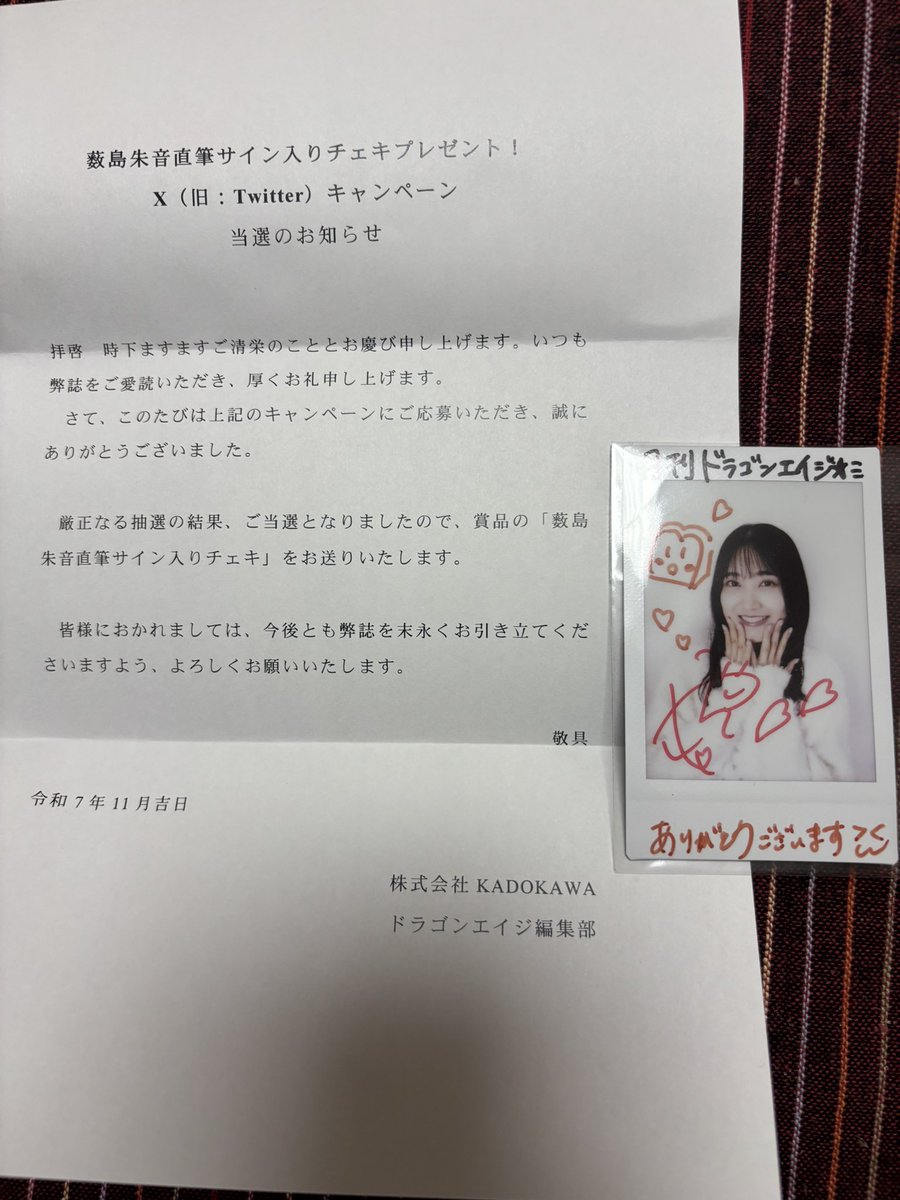 薮島朱音直筆サイン入りチェキプレゼント！
X（旧：Twitter）キャンペーン
当選のお知らせ
拝啓　時下ますますご清栄のこととお慶び申し上げます。いつも
弊誌をご愛読いただき、厚くお礼申し上げます。
さて、このたびは上記のキャンペーンにご応募いただき、誠に
ありがとうございました。
厳正なる抽選の結果、ご当選となりましたので、賞品の「薮島
朱音直筆サイン入りチェキ」をお送りいたします。
皆様におかれましては、今後とも弊誌を末永くお引き立てくだ
さいますよう、よろしくお願いいたします。
敬具
令和 7 年 11 月吉日
株式会社 KADOKAWA
ドラゴンエイジ編集部
月刊ドラゴンエイジ
ありがとうございます